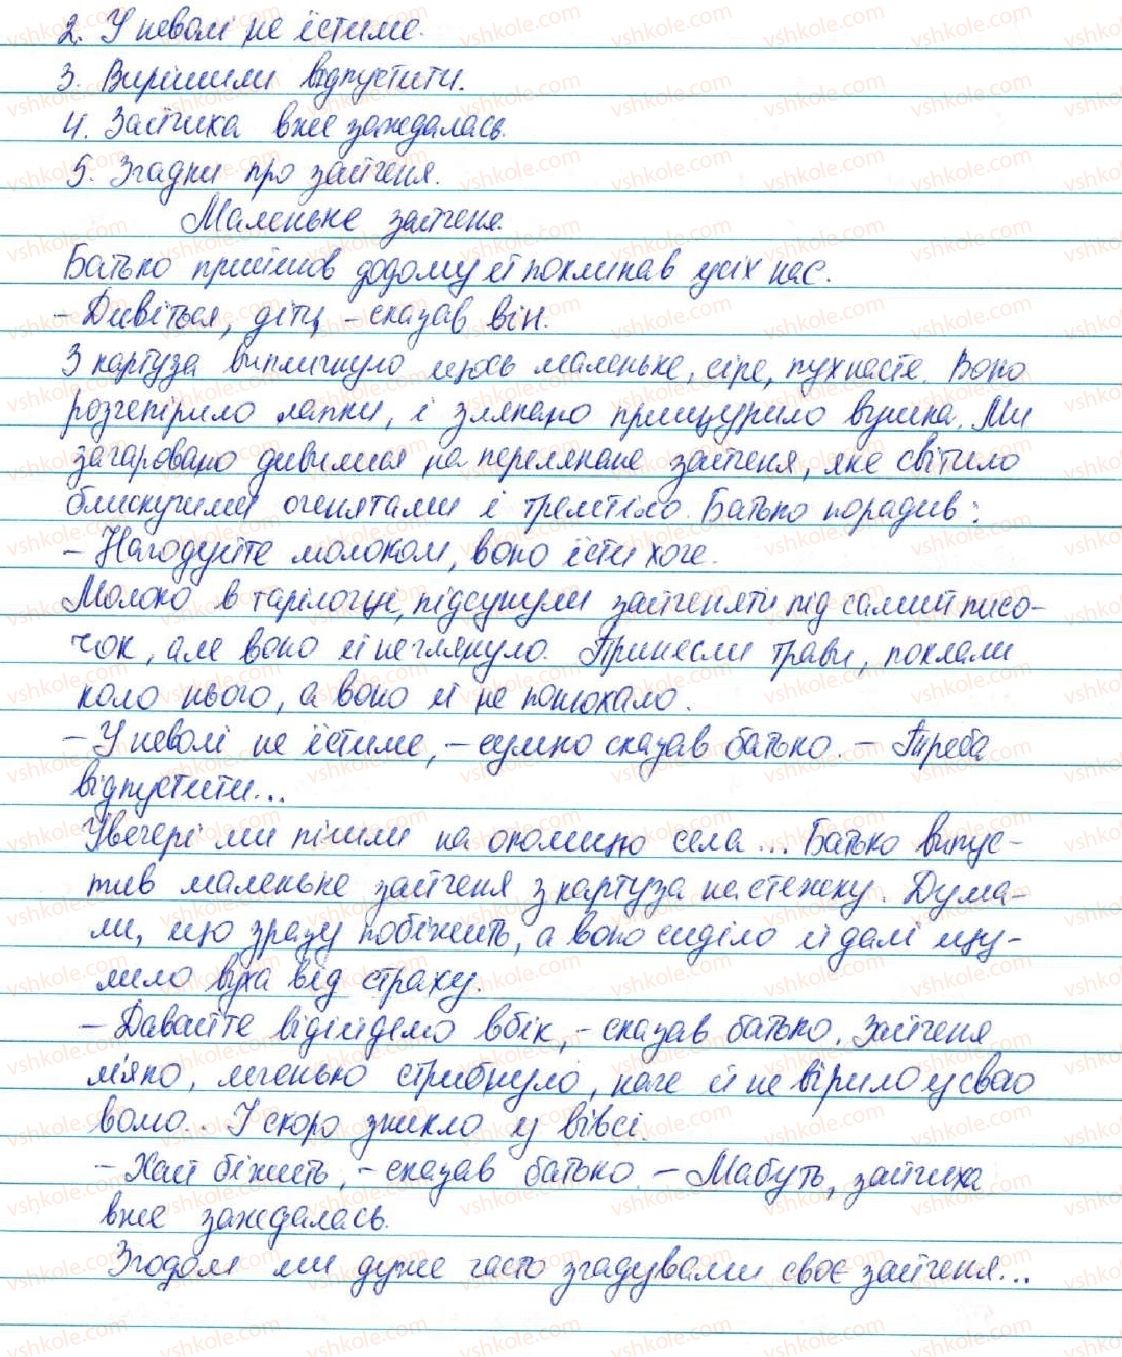 2. У неволі не їстиме.
3. Вирішили відпустити.
4. Зайчиха вже зажедалась.
5. Згадки про зайченя.
Маленьке зайченя.
Батько прийшов додому й покликав усіх нас.
- Дивіться, діти, - сказав він.
З картуза виплигнуло щось маленьке, сіре, пухнасте. Воно
розчепірило лапки, і злякано прищурило вушка. Ми
зачаровано дивилися на перелякане зайченя, яке світило
блискучими оченятами і тремтіло. Батько порадив:
- Нагодуйте молоком, воно їсти хоче.
Молоко в тарілочці, підсунули зайченяти під самий писо-
чок, але воно й не глянуло. Принесли трави, поклали
коло нього, а воно й не понюхало.
- У неволі не їстиме, - сумно сказав батько. - Треба
відпустити...
Увечері ми пішли на околицю села... Батько випус-
тив маленьке зайченя з картуза на стежку. Дума-
ли, що зразу побіжить, а воно сиділо й далі щу-
лило вуха від страху.
- Давайте відійдемо вбік, - сказав батько. Зайченя
м'яко, легенько стрибнуло, наче й не вірило у свою
волю.. І скоро зникло у вівсі.
- Хай біжить, - сказав батько. - Мабуть, зайчиха
вже зажедалась.
Згодом ми дуже часто згадували своє зайченя...